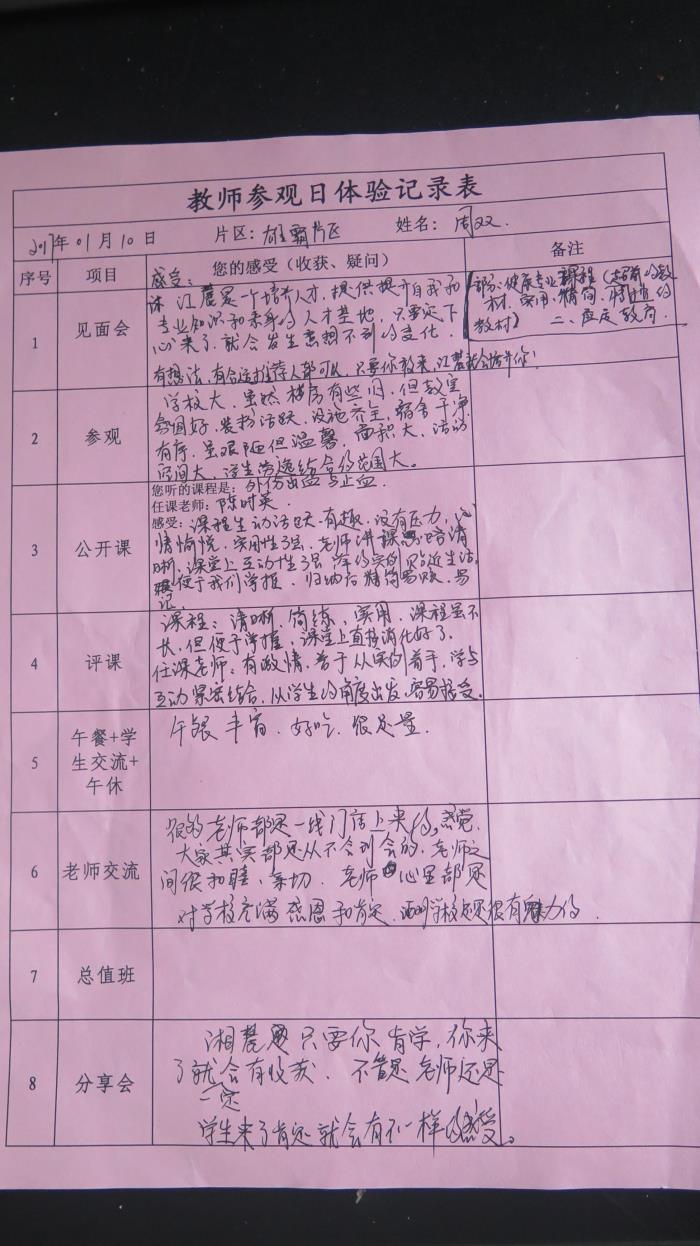 教师参观日体验记录表
2017年01月10日 片区：雄霸片区 姓名：周双.
序号 项目 您的感受（收获、疑问） 备注
1 见面会
感受：
江麓是一个培养人才，提供提升自我和
专业知识和素身的人才基地，只要定下
心来了，就会发生意想不到的变化.
有想法，有合适推荐人都可以，只要你敢来，江麓就会培养你！
部分、健康专业课程（超前的教
材，实用、精简、精道的
教材） 二、应定教育.
2 参观
学校大，虽然楼房有些旧，但教室
氛围好，装扮活跃，设施齐全，宿舍干净
有序，虽艰陋但温馨，面积大，活动
空间大，学生劳逸结合的范围大。
3 公开课
您听的课程是：外伤出血与止血.
任课老师：陈时英.
感受：课程生动活跃.有趣，没有压力，心
情愉悦，实用性强，老师讲课思路清
晰，课堂上互动性强 举的实例贴近生活，
便于我们掌握，归纳后精简易读、易
记.
4 评课
课程：清晰，简练，实用，课程虽不
长，但便于掌握，课堂上直接消化好了.
任课老师：有激情，善于从实例着手，学与
互动紧密结合，从学生的角度出发，容易接受.
5 午餐+学
生交流+
午休
午餐丰富，好吃，很足量.
6 老师交流
很多老师都是一线门店上来的，感觉
大家其实都是从不会到会的，老师之
间很和睦、亲切. 老师心里都是
对学校充满感恩和肯定，说明学校还是很有魅力的.
7 总值班
8 分享会
湘麓是只要你肯学，你来
了就会有收获. 不管是老师还是
一定
学生来了肯定就会有不一样的感受。